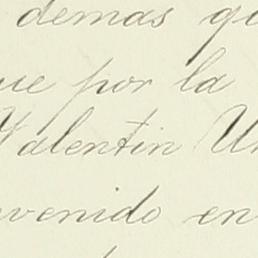 demas q
ue por la
Valentin U
venido en